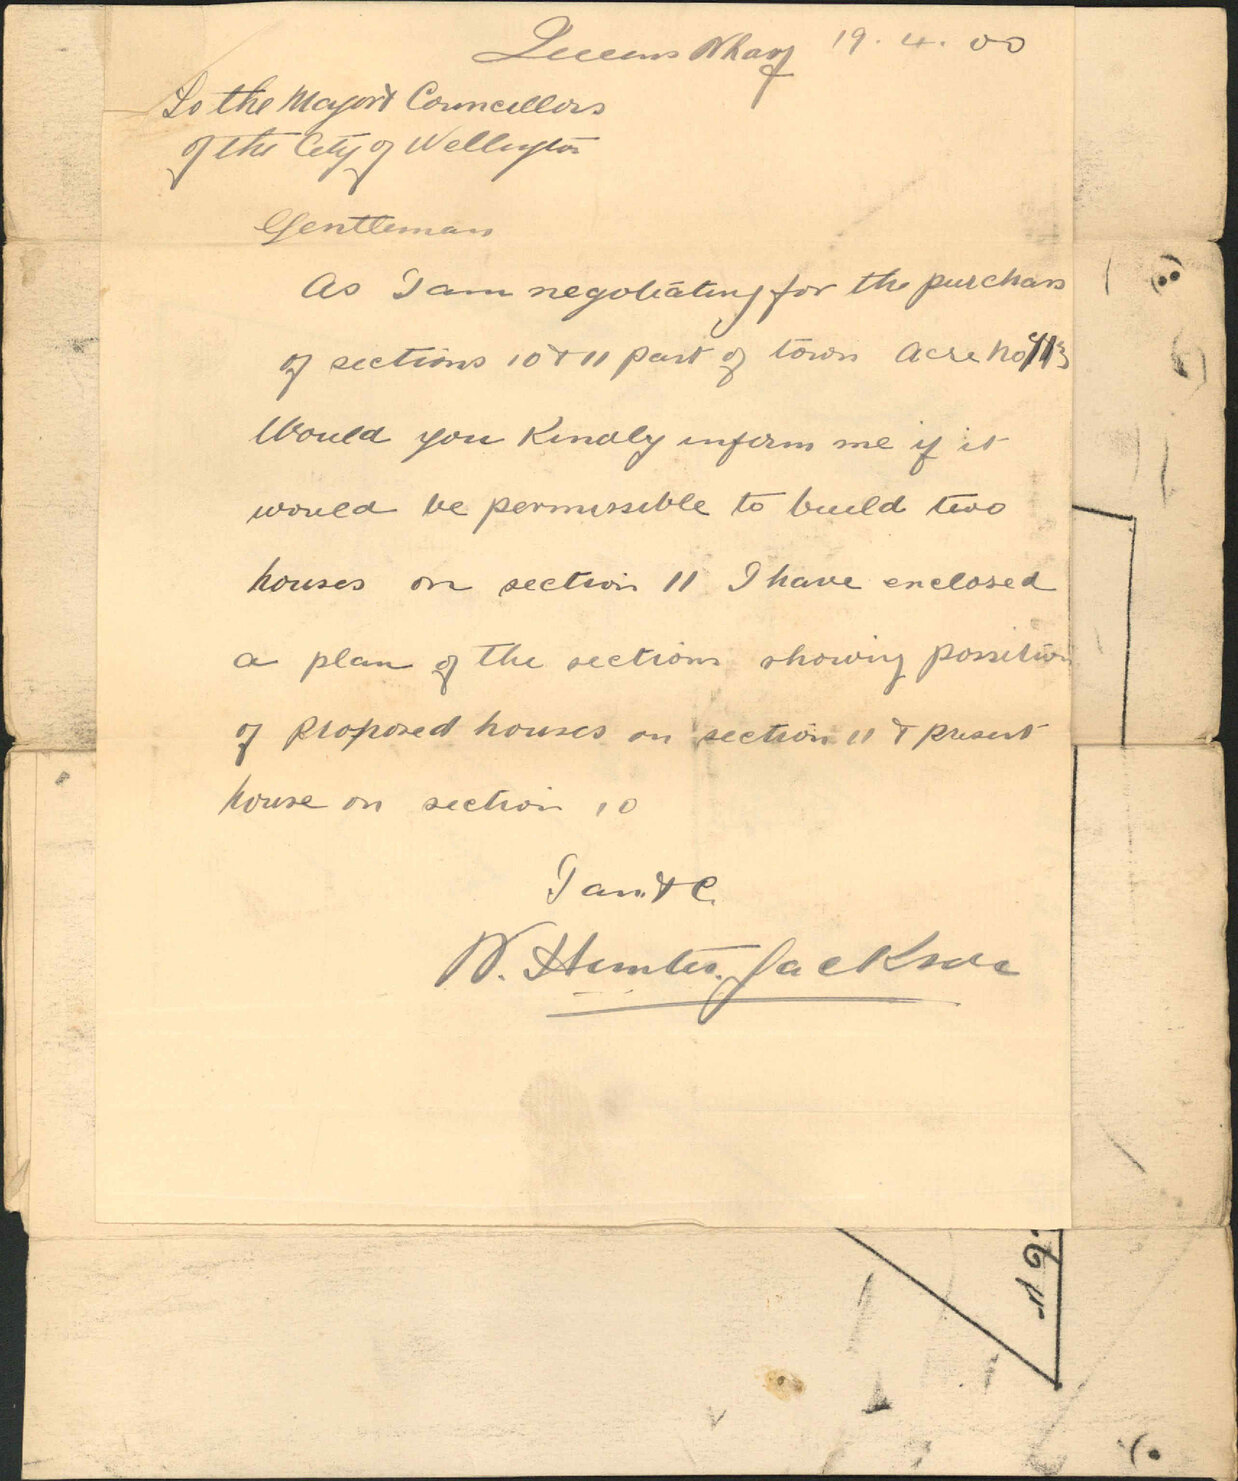 Queens Wharf 19.4.00
To the Mayor & Councillors
of the City of Wellington
Gentleman
As I am negotiating for the purchase
of sections 10 & 11 part of town Acre No
Would you Kindly inform me if it
would be permissible to build two
houses on section 11 I have enclosed
a plan of the sections showing possition
of proposed houses on section 11 & present
house on section 10
I am & C.
W. Hunter Jackson